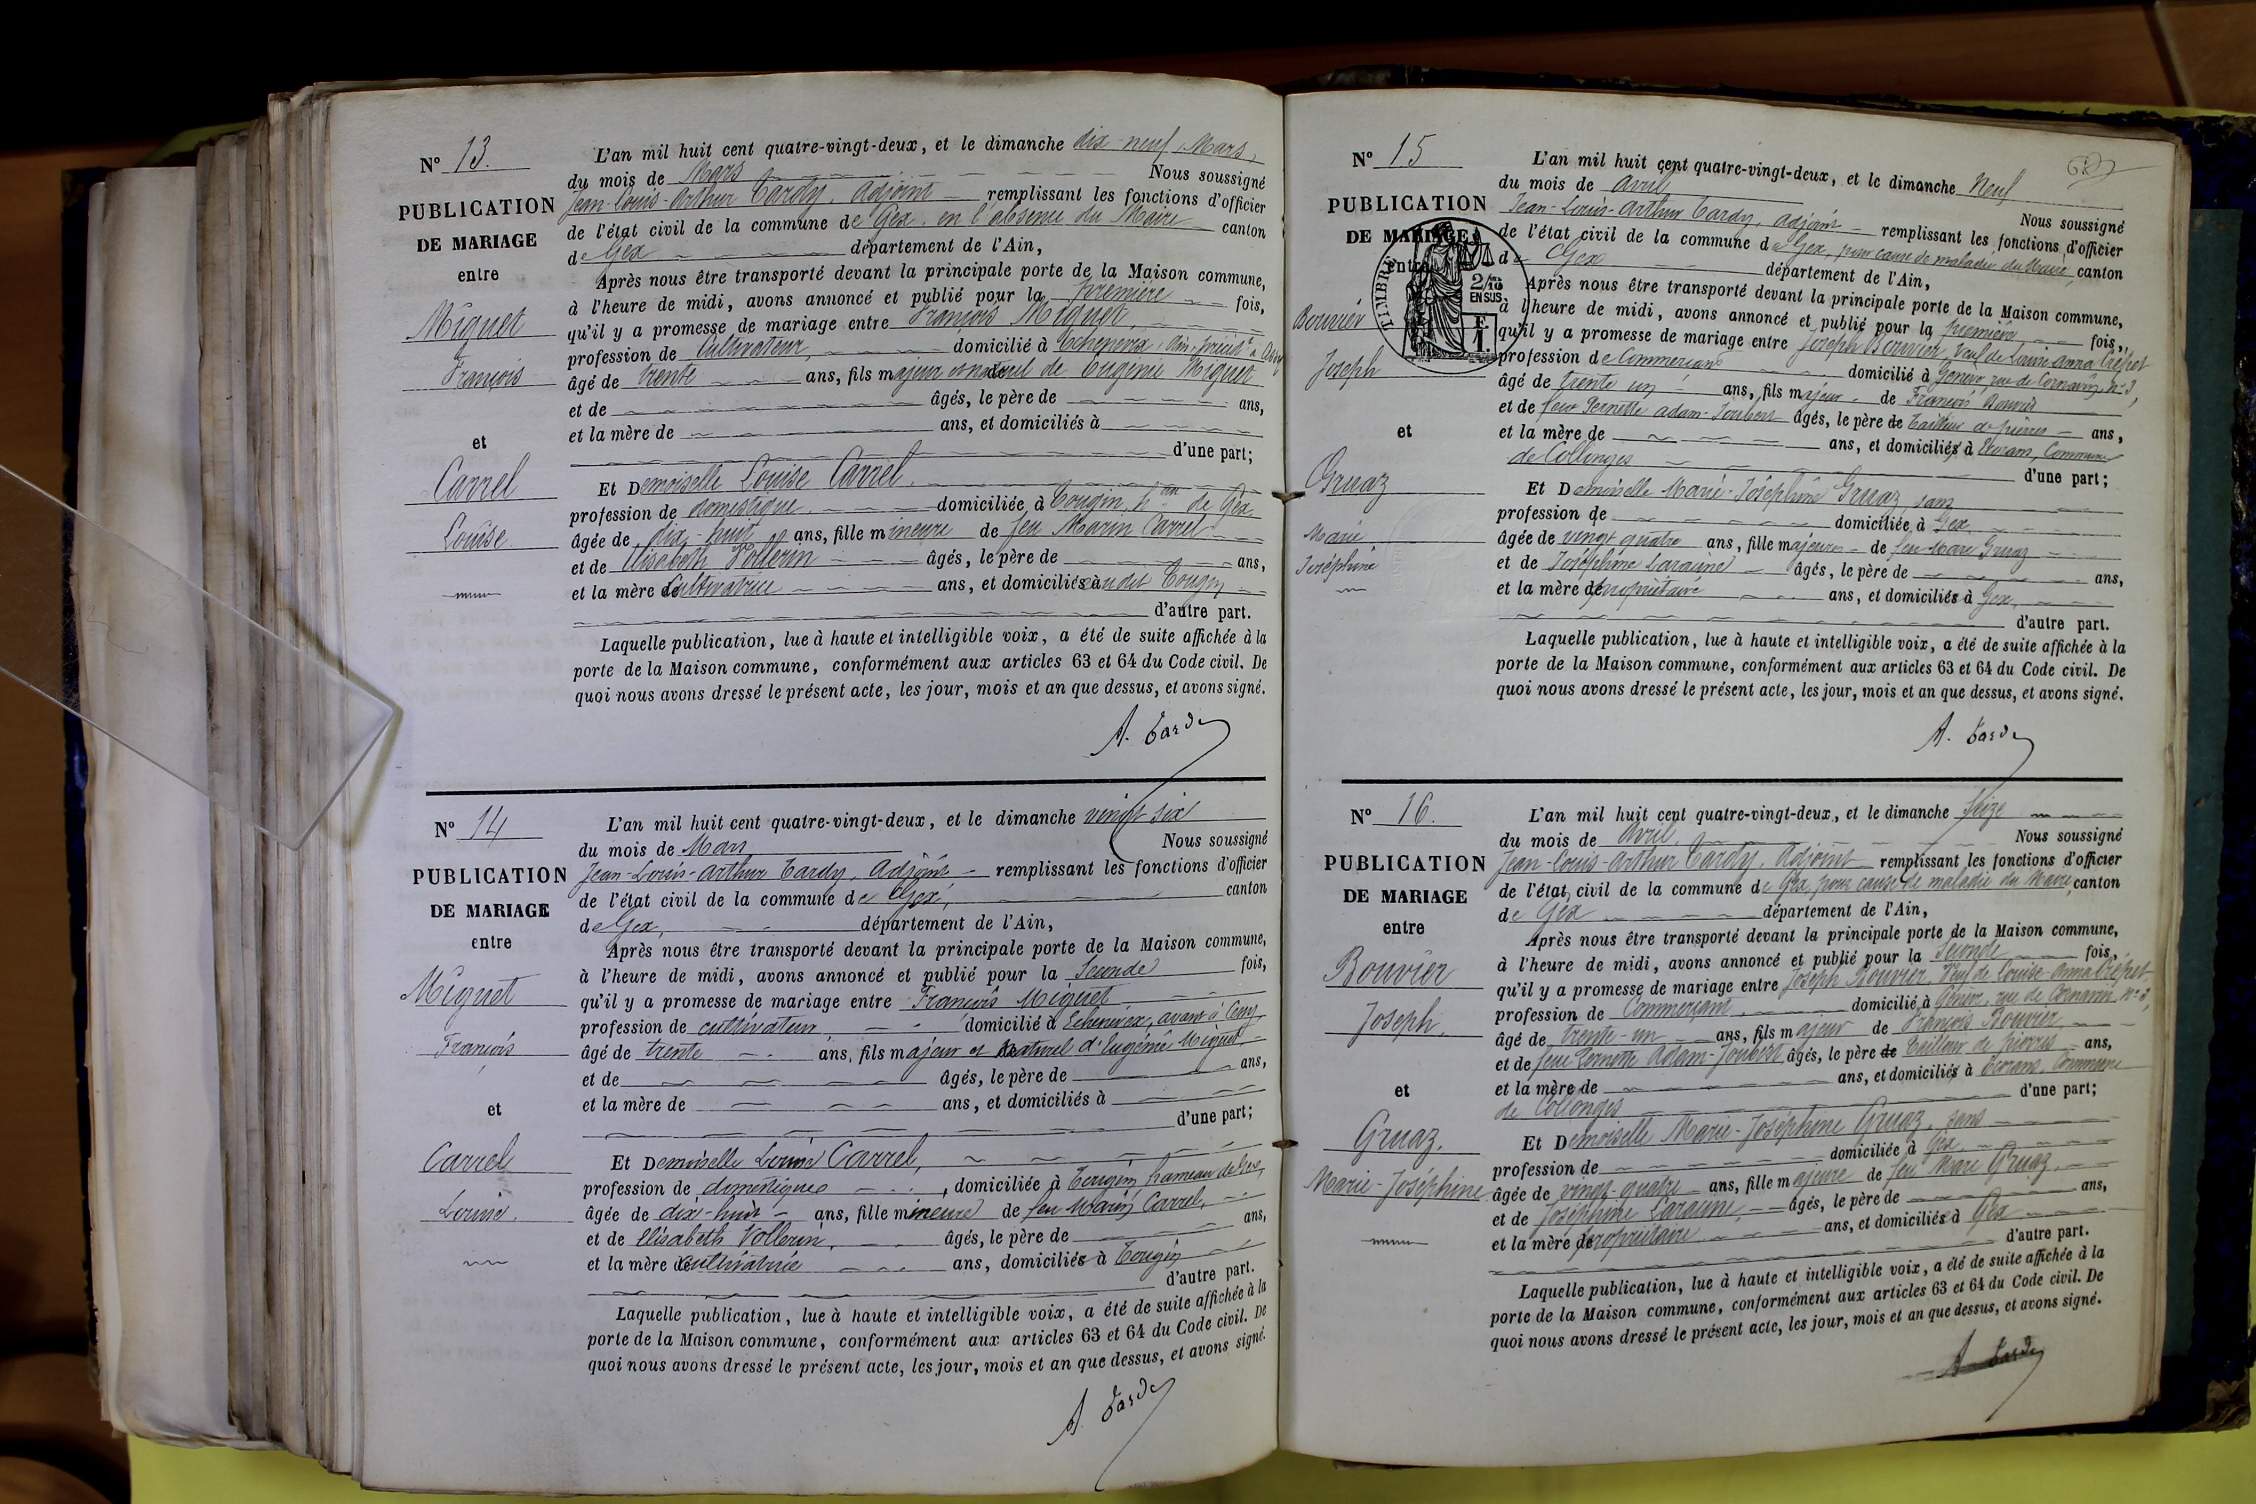 N° 13.
PUBLICATION
DE MARIAGE
entre
Miguet
François
et
Carrel
Louise
L'an mil huit cent quatre-vingt-deux, et le dimanche dix-neuf Mars,
du mois de Mars Nous soussigné
Jean-Louis-Arthur Tardy, Adjoint remplissant les fonctions d'officier
de l'état civil de la commune de Gex, en l'absence du Maire canton
de Gex département de l'Ain,
Après nous être transporté devant la principale porte de la Maison commune,
à l'heure de midi, avons annoncé et publié pour la première fois,
qu'il y a promesse de mariage entre François Miguet,
profession de Cultivateur, domicilié à Echenevex
âgé de trente ans, fils majeur et naturel de Eugénie Miguet
et de âgés, le père de ans,
et la mère de ans, et domiciliés à
d'une part;
Et Demoiselle Louise Carrel,
profession de domestique, domiciliée à Tougin, h.au de Gex
âgée de dix-huit ans, fille mineure de feu Marin Carrel
et de Elisabeth Vollerin âgés, le père de ans,
et la mère de Cultivatrice ans, et domiciliés à audit Tougin
d'autre part.
Laquelle publication, lue à haute et intelligible voix, a été de suite affichée à la
porte de la Maison commune, conformément aux articles 63 et 64 du Code civil. De
quoi nous avons dressé le présent acte, les jour, mois et an que dessus, et avons signé.
A. Tardy
N° 14
PUBLICATION
DE MARIAGE
entre
Miguet
François
et
Carrel
Louise.
L'an mil huit cent quatre-vingt-deux, et le dimanche vingt six
du mois de Mars Nous soussigné
Jean-Louis-Arthur Tardy, Adjoint remplissant les fonctions d'officier
de l'état civil de la commune de Gex, canton
de Gex, département de l'Ain,
Après nous être transporté devant la principale porte de la Maison commune,
à l'heure de midi, avons annoncé et publié pour la Seconde fois,
qu'il y a promesse de mariage entre François Miguet
profession de cultivateur domicilié à Echenevex, avant à
âgé de trente ans, fils majeur et naturel d'Eugénie Miguet
et de âgés, le père de ans,
et la mère de ans, et domiciliés à
d'une part;
Et Demoiselle Louise Carrel,
profession de domestique, domiciliée à Tougin, hameau de Gex,
âgée de dix-huit ans, fille mineure de feu Marin Carrel,
et de Elisabeth Vollerin, âgés, le père de ans,
et la mère de cultivatrice ans, domiciliés à Tougin
d'autre part.
Laquelle publication, lue à haute et intelligible voix, a été de suite affichée à la
porte de la Maison commune, conformément aux articles 63 et 64 du Code civil. De
quoi nous avons dressé le présent acte, les jour, mois et an que dessus, et avons signé.
A. Tardy
N° 15
PUBLICATION
DE MARIAGE
entre
TIMBRE
2/10
EN SUS
F.
1.
Bouvier
Joseph
et
Gruaz
Marie
Joséphine
L'an mil huit cent quatre-vingt-deux, et le dimanche Neuf
du mois de Avril Nous soussigné
Jean-Louis-Arthur Tardy, adjoint remplissant les fonctions d'officier
de l'état civil de la commune de Gex, pour cause de maladie du Maire, canton
de Gex département de l'Ain,
Après nous être transporté devant la principale porte de la Maison commune,
à l'heure de midi, avons annoncé et publié pour la première fois,
qu'il y a promesse de mariage entre Joseph Bouvier, veuf de Louise Anna Crépet
profession de Commerçant domicilié à Genève, rue de Cornavin, n° 3,
âgé de trente un ans, fils majeur de François Bouvier
et de feue Pernette Adam-Joubert âgés, le père de tailleur de pierres ans,
et la mère de ans, et domiciliés à Ecorans, Commune
de Collonges d'une part;
Et Demoiselle Marie-Joséphine Gruaz, sans
profession de domiciliée à Gex
âgée de vingt quatre ans, fille majeure de feu Marc Gruaz
et de Joséphine Laraine âgés, le père de ans,
et la mère de propriétaire ans, et domiciliés à Gex,
d'autre part.
Laquelle publication, lue à haute et intelligible voix, a été de suite affichée à la
porte de la Maison commune, conformément aux articles 63 et 64 du Code civil. De
quoi nous avons dressé le présent acte, les jour, mois et an que dessus, et avons signé.
A. Tardy
N° 16.
PUBLICATION
DE MARIAGE
entre
Bouvier
Joseph,
et
Gruaz.
Marie-Joséphine
L'an mil huit cent quatre-vingt-deux, et le dimanche Seize
du mois de Avril Nous soussigné
Jean-Louis-Arthur Tardy, Adjoint remplissant les fonctions d'officier
de l'état civil de la commune de Gex, pour cause de maladie du Maire, canton
de Gex département de l'Ain,
Après nous être transporté devant la principale porte de la Maison commune,
à l'heure de midi, avons annoncé et publié pour la Seconde fois,
qu'il y a promesse de mariage entre Joseph Bouvier Veuf de Louise Anna Crépet
profession de Commerçant, domicilié à Genève, rue de Cornavin, n° 3,
âgé de trente-un ans, fils majeur de François Bouvier
et de feue Pernette Adam-Joubert, âgés, le père de tailleur de pierres ans,
et la mère de ans, et domiciliés à Ecorans, Commune
de Collonges d'une part;
Et Demoiselle Marie-Joséphine Gruaz, sans
profession de domiciliée à Gex
âgée de vingt-quatre ans, fille majeure de feu Marc Gruaz,
et de Joséphine Laraine, âgés, le père de ans,
et la mère de propriétaire ans, et domiciliés à Gex
d'autre part.
Laquelle publication, lue à haute et intelligible voix, a été de suite affichée à la
porte de la Maison commune, conformément aux articles 63 et 64 du Code civil. De
quoi nous avons dressé le présent acte, les jour, mois et an que dessus, et avons signé.
A. Tardy